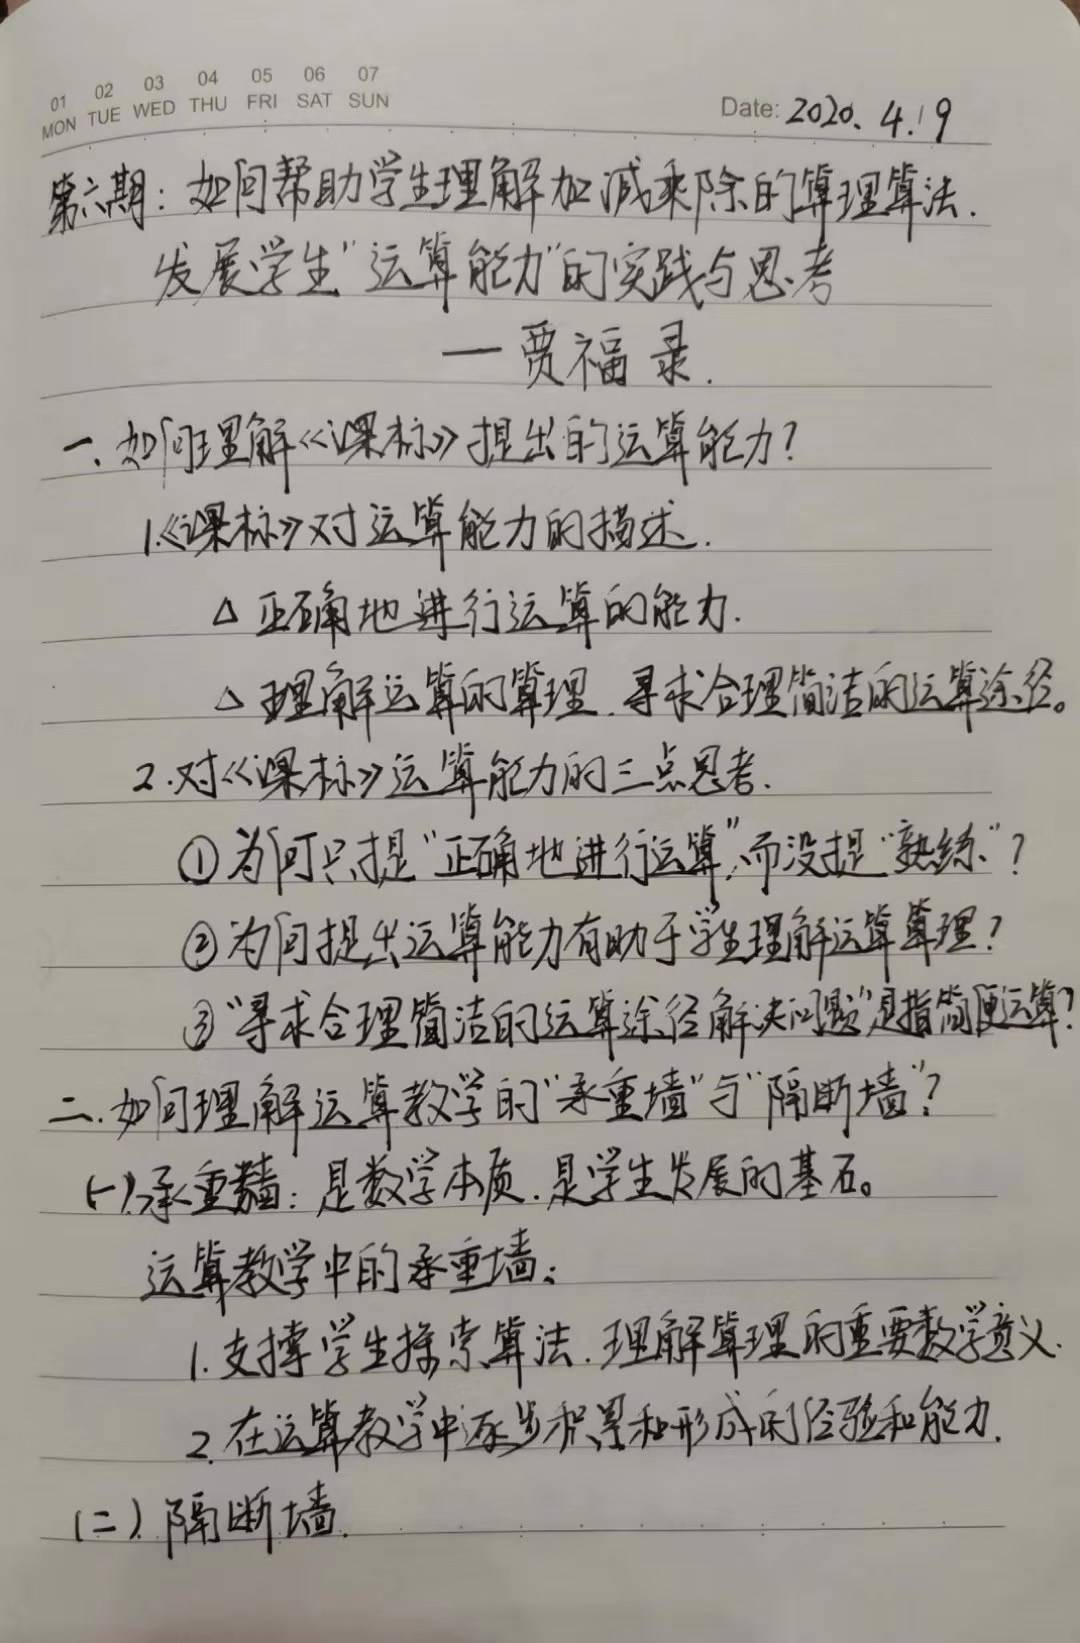 01 02 03 04 05 06 07
MON TUE WED THU FRI SAT SUN
Date: 2020.4.19
第六期：如何帮助学生理解加减乘除的算理算法.
发展学生"运算能力"的实践与思考
——贾福录.
一、如何理解《课标》提出的运算能力?
1.《课标》对运算能力的描述.
△ 正确地进行运算的能力.
△ 理解运算的算理.寻求合理简洁的运算途径。
2.对《课标》运算能力的三点思考.
①为何只提"正确地进行运算",而没提"熟练"?
②为何提出运算能力有助于学生理解运算算理?
③"寻求合理简洁的运算途径解决问题"是指简便运算?
二.如何理解运算教学的"承重墙"与"隔断墙"?
(一).承重墙：是数学本质.是学生发展的基石。
运算教学中的承重墙：
1.支撑学生探索算法.理解算理的重要数学意义.
2.在运算教学中逐步积累和形成的经验和能力.
(二)隔断墙.